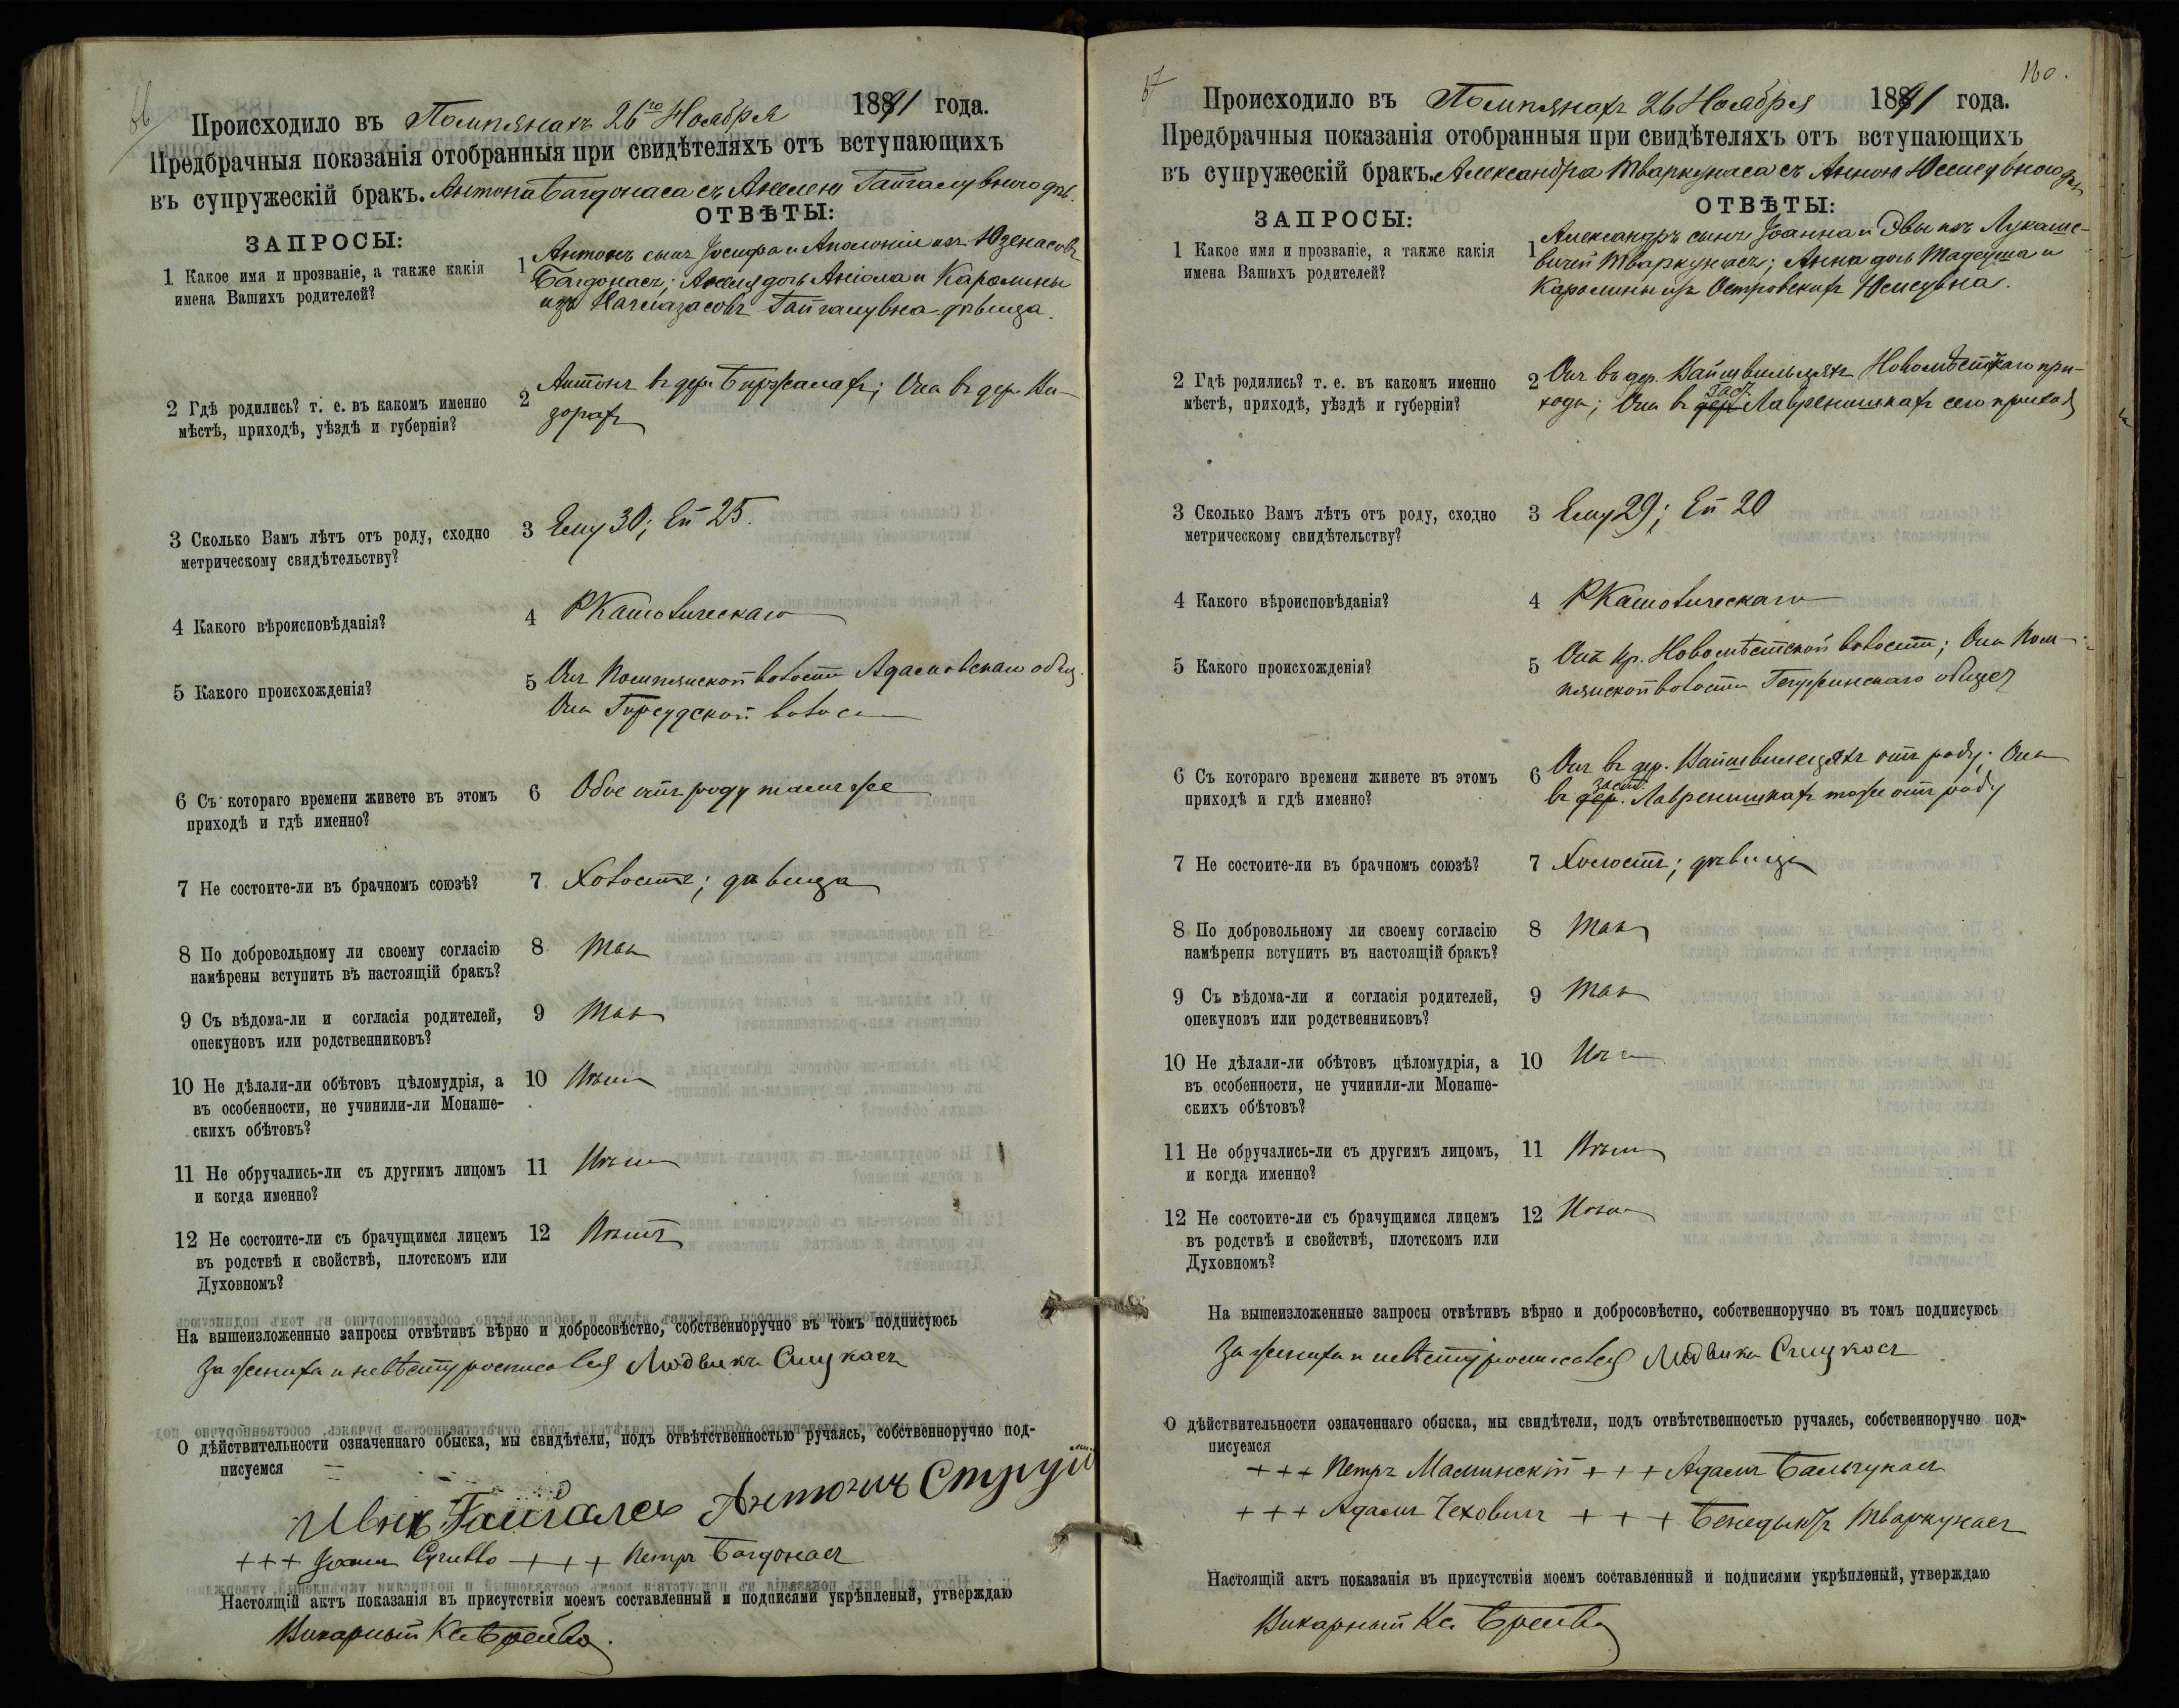 66
Происходило въ Помпянахъ 26го Ноября 1891 года.
Предбрачныя показанія отобранныя при свидѣтеляхъ отъ вступающихъ
въ супружескій бракъ. Антона Багдонаса съ Анелею
ЗАПРОСЫ:
ОТВѢТЫ:
1 Какое имя и прозваніе, а также какія
имена Вашихъ родителей?
1 Антонъ сынъ Іосифа и Аполоніи изъ Юзенасовъ
Багдонасъ; Анеля дочь Аніола и Каролины
изъ дѣвица.
2 Гдѣ родились? т. е. въ какомъ именно
мѣстѣ, приходѣ, уѣздѣ и губерніи?
2 Антонъ въ дер. Биржалахъ; Она въ дер.
3 Сколько Вамъ лѣтъ отъ роду, сходно
метрическому свидѣтельству?
3 Ему 30; Ей 25.
4 Какого вѣроисповѣданія?
4 РКатолическаго
5 Какого происхожденія?
5 Онъ Помпянской волости Адамовскаго общ.
Она волос
6 Съ котораго времени живете въ этомъ
приходѣ и гдѣ именно?
6 Обое отъ роду тамъ же
7 Не состоите-ли въ брачномъ союзѣ?
7 Холостъ; дѣвица
8 По добровольному ли своему согласію
намѣрены вступить въ настоящій бракъ?
8 Так
9 Съ вѣдома-ли и согласія родителей,
опекуновъ или родственниковъ?
9 Так
10 Не дѣлали-ли обѣтовъ цѣломудрія, а
въ особенности, не учинили-ли Монаше-
скихъ обѣтовъ?
10 Нѣт
11 Не обручались-ли съ другимъ лицомъ
и когда именно?
11 Нѣт
12 Не состоите-ли съ брачущимся лицемъ
въ родствѣ и свойствѣ, плотскомъ или
Духовномъ?
12 Нѣтъ
На вышеизложенные запросы отвѣтивъ вѣрно и добросовѣстно, собственноручно въ томъ подписуюсь
За жениха и невѣсту росписался Людвикъ Слуцкасъ
О дѣйствительности означеннаго обыска, мы свидѣтели, подъ отвѣтственностью ручаясь, собственноручно под-
писуемся
Гайгалсъ Антонъ
+++ +++ Петръ Багдонасъ
Настоящій актъ показанія въ присутствіи моемъ составленный и подписями укрѣпленый, утверждаю
Викарный Кс.
67
160.
Происходило въ Помпянахъ 26 Ноября 1891 года.
Предбрачныя показанія отобранныя при свидѣтеляхъ отъ вступающихъ
въ супружескій бракъ. Александра Тваркунаса съ Анною
ЗАПРОСЫ:
ОТВѢТЫ:
1 Какое имя и прозваніе, а также какія
имена Вашихъ родителей?
1 Александръ сынъ Іоанна и Эвы изъ Лукаше-
вичей Тваркунасъ; Анна дочь Тадеуша и
Каролины изъ Островскихъ
2 Гдѣ родились? т. е. въ какомъ именно
мѣстѣ, приходѣ, уѣздѣ и губерніи?
2 Онъ въ дер. Новомѣстскаго при-
хода; Она въ дер. Лавренишкахъ сего прихода
3 Сколько Вамъ лѣтъ отъ роду, сходно
метрическому свидѣтельству?
3 Ему 29; Ей 20
4 Какого вѣроисповѣданія?
4 РКатолическаго
5 Какого происхожденія?
5 Онъ кр. Новомѣстской волости; Она Пом-
пянской волости общес
6 Съ котораго времени живете въ этомъ
приходѣ и гдѣ именно?
6 Онъ въ дер. отъ роду; Она
въ дер. заст. Лавренишкахъ тоже отъ роду
7 Не состоите-ли въ брачномъ союзѣ?
7 Холостъ; дѣвица
8 По добровольному ли своему согласію
намѣрены вступить въ настоящій бракъ?
8 Так
9 Съ вѣдома-ли и согласія родителей,
опекуновъ или родственниковъ?
9 Так
10 Не дѣлали-ли обѣтовъ цѣломудрія, а
въ особенности, не учинили-ли Монаше-
скихъ обѣтовъ?
10 Нѣт
11 Не обручались-ли съ другимъ лицомъ,
и когда именно?
11 Нѣт
12 Не состоите-ли съ брачущимся лицемъ
въ родствѣ и свойствѣ, плотскомъ или
Духовномъ?
12 Нѣт
На вышеизложенные запросы отвѣтивъ вѣрно и добросовѣстно, собственноручно въ томъ подписуюсь
За жениха и невѣсту росписался Людвикъ Слуцкасъ
О дѣйствительности означеннаго обыска, мы свидѣтели, подъ отвѣтственностью ручаясь, собственноручно под-
писуемся
+++ Петръ Малинскій +++ Адамъ Бальчунасъ
+++ Адамъ Чеховичъ +++ Бенедыктъ Тваркунасъ
Настоящій актъ показанія въ присутствіи моемъ составленный и подписями укрѣпленый, утверждаю
Викарный Кс.